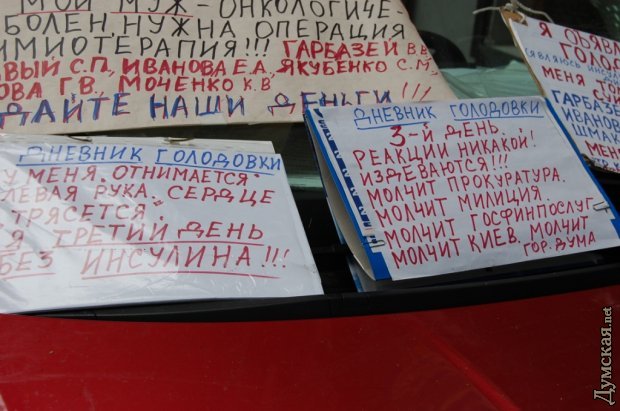 МОЙ МУЖ - ОНКОЛОГИЧЕ-
БОЛЕН, НУЖНА ОПЕРАЦИЯ
ИМИОТЕРАПИЯ!!! ГАРБАЗЕЙ В.В.
ВЫЙ С.П., ИВАНОВА Е.А., ЯКУБЕНКО С.Л.
ОВА Г.В., МОЧЕНКО К.В
ДАЙТЕ НАШИ ДЕНЬГИ!!!
ДНЕВНИК ГОЛОДОВКИ
У МЕНЯ ОТНИМАЕТСЯ
ЛЕВАЯ РУКА, СЕРДЦЕ
ТРЯСЕТСЯ.
Я ТРЕТИЙ ДЕНЬ
БЕЗ ИНСУЛИНА!!!
ДНЕВНИК ГОЛОДОВКИ
3-Й ДЕНЬ.
РЕАКЦИИ НИКАКОЙ!
ИЗДЕВАЮТСЯ!!!
МОЛЧИТ ПРОКУРАТУРА.
МОЛЧИТ МИЛИЦИЯ.
МОЛЧИТ ГОСФИНПОСЛУГ
МОЛЧИТ КИЕВ. МОЛЧИТ
ГОР. ДУМА
Я ОБЪЯВ
ГОЛО
(ЯВЛЯЮСЬ ИНСУЛ
МЕНЯ ТО
ГАРБАЗЕ
ИВАНО
ШМА
Думская.net